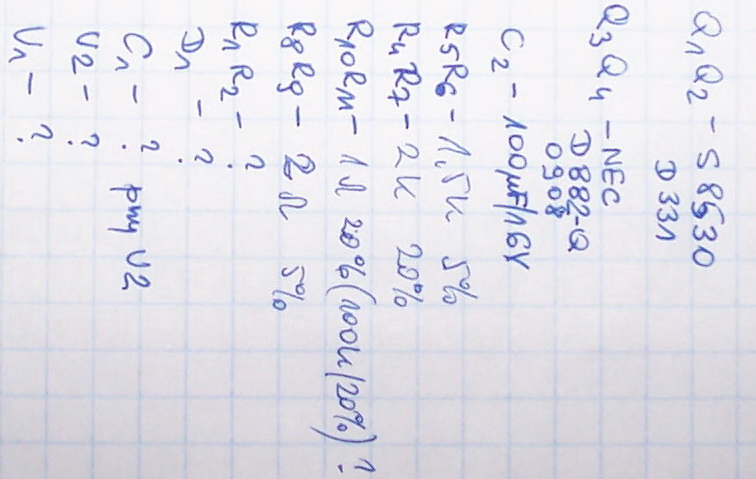 Q1Q2 - S8530
D331
Q3Q4 - NEC
D882-Q
0908
C2 - 100μF/16V
R5R6 - 1,5K 5%
R4R7 - 2K 20%
R10R11 - 1Ω 20% (100K/20%) ?
R8R9 - 2Ω 5%
R1R2 - ?
D1 - ?
C1 - ? przy U2
U2 - ?
U1 - ?